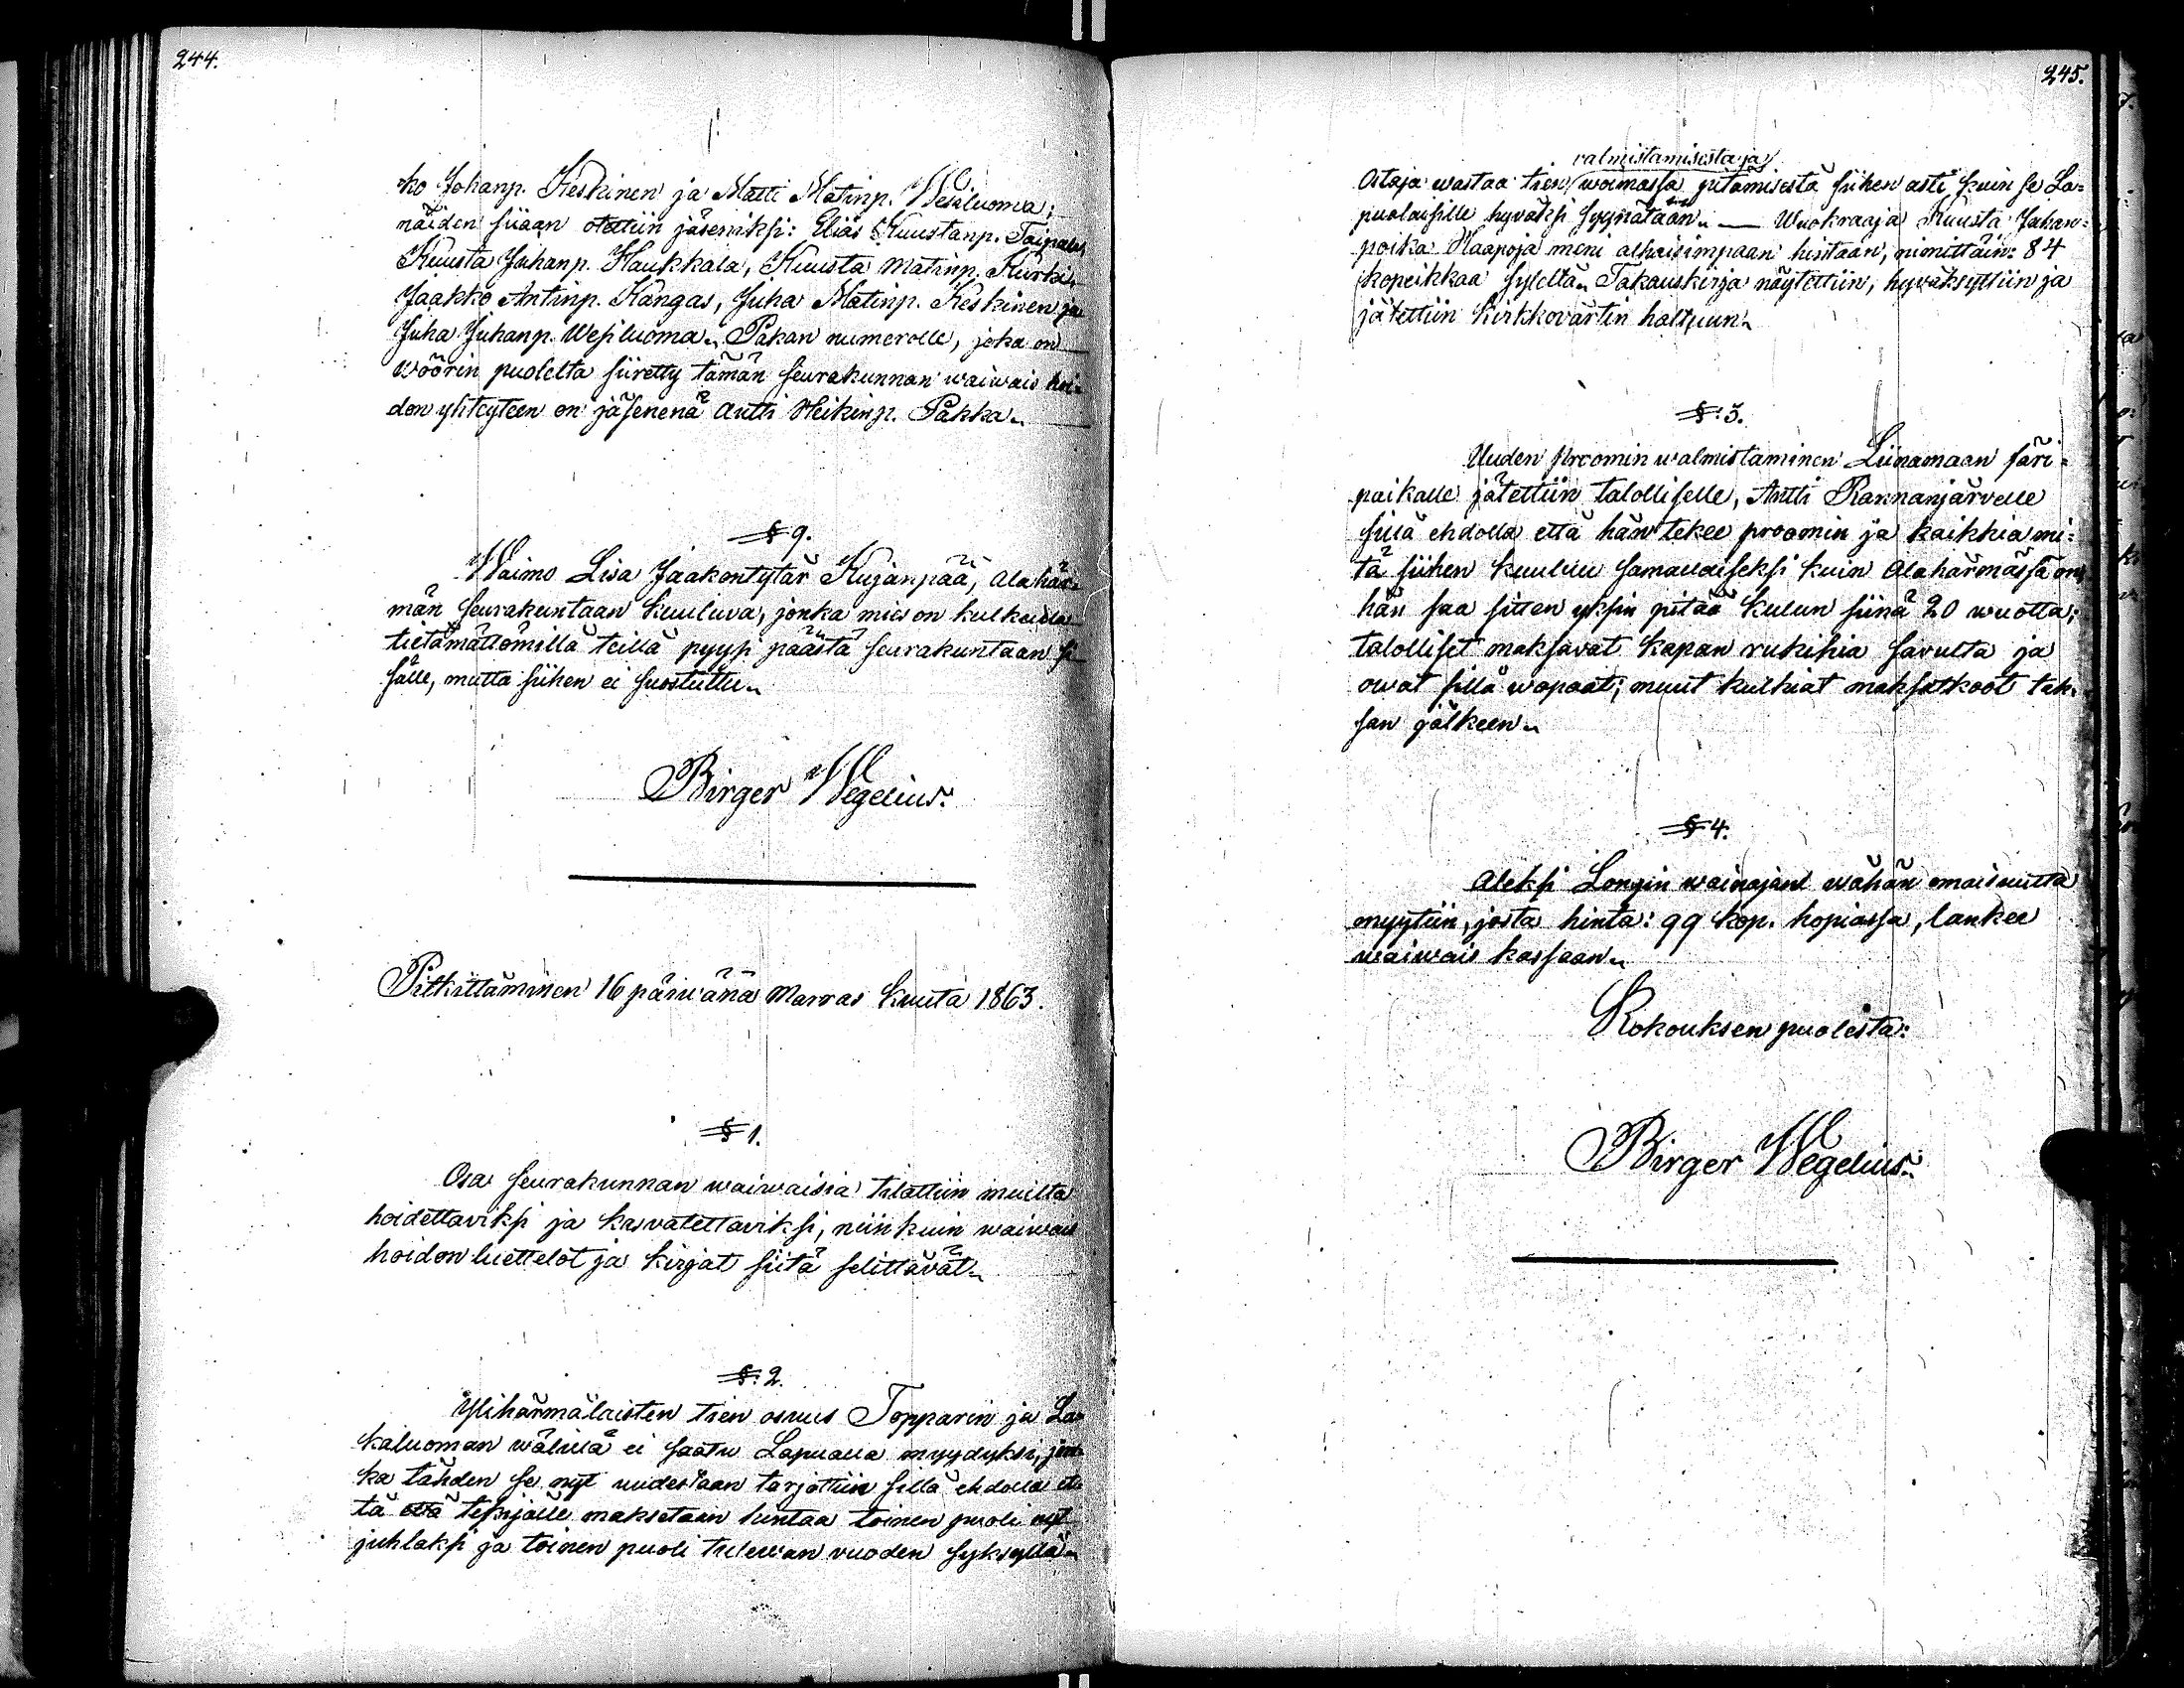 244.
ko Johanp. Keskinen ja Matti Matinp. Wesiluoma;
näiden siiaan otettiin jäseniksi: Elias Kuustanp. Taipale,
Kuusta Juhanp. Haukkala, Kuusta Matinp. Kurki,
Jaakko Antinp. Kangas, Juha Matinp. Keskinen ja
Juha Juhanp. Wesiluoma. Påkan numerolle, joka on
Wöörin puolelta siiretty tämän seurakunnan waiwais hoi-
don yhteyteen on jäsenenä Antti Heikinp. Påkka.
§ 9.
Waimo Lisa Jaakontytär Kujanpää, Alahär-
män seurakuntaan kuuluva, jonka mies on kulkuilla
tietämättömillä teillä pyysi päästä seurakuntaan si-
sälle, mutta siihen ei suostuttu.
Birger Wegelius.
Pitkittäminen 16 päiwänä Marras kuuta 1863.
§ 1.
Osa seurakunnan waiwaisia tilattiin muilta
hoidettaviksi ja kasvatettaviksi, niinkuin waiwais
hoidon luettelot ja kirjat siitä selittävät.
§. 2.
Ylihärmäläisten tien osuus Topparin ja La-
kaluoman wälillä ei saatu Lapualla myydyksi, jon-
ka tähden se nyt uudestaan tarjottiin sillä ehdolla et-
tä että tekijälle maksetaan hintaa toinen puoli nyt
juhlaksi ja toinen puoli tulewan vuoden syksyllä.
245.
valmistamisesta ja
Ostaja wastaa tien woimassa pitämisestä siihen asti kuin se La-
pualaisille hyväksi syynätään. — Wuokraaja Kuusta Juhan-
poika Haapoja meni alhaisimpaan hintaan, nimittäin: 84
kopeikkaa syleltä. Takauskirja näytettiin, hyväksyttiin ja
jätettiin kirkkovärtin haltuun.
§. 3.
Uuden proomin walmistaminen Liinamaan färi-
paikalle jätettiin talolliselle, Antti Rannanjärvelle
sillä ehdolla että hän tekee proomin ja kaikkia mi-
tä siihen kuuluu samallaiseksi kuin Alahärmässä on,
hän saa sitten yksin pitää kulun siinä 20 wuotta;
talolliset maksavat kapan rukihia savulta ja
owat sillä wapaat; muut kulkiat maksatkoot tak-
san jälkeen.
§ 4.
Aleksi Longin wainajan wähän omaisuutta
myytiin, josta hinta: 99 kop. hopiassa, lankee
waiwais kassaan.
Kokouksen puolesta:
Birger Wegelius.